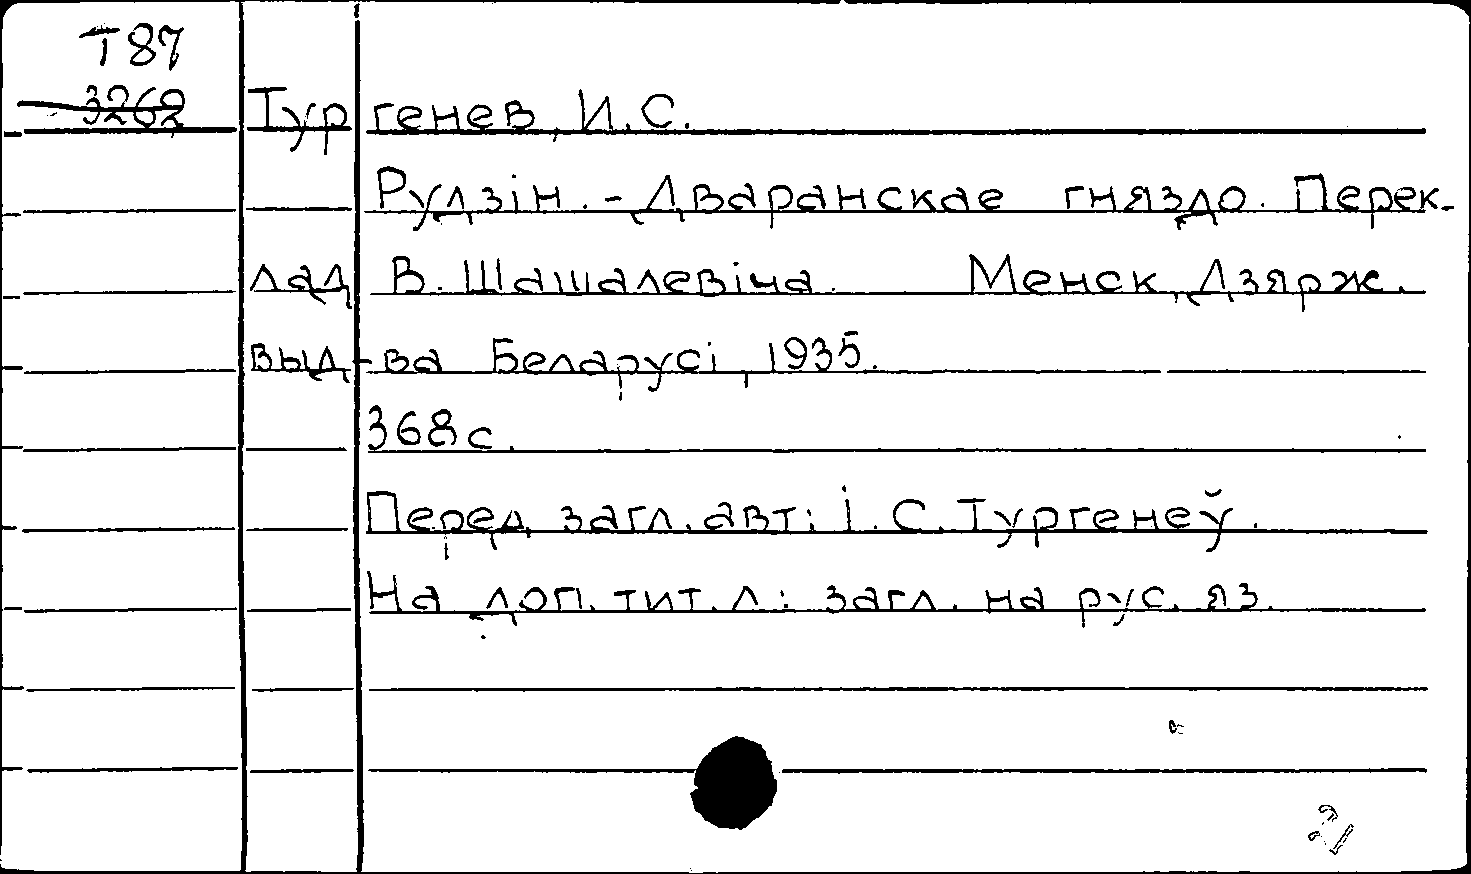 Т87
3262
Тургенев, И.С.
Рудзін. - Дваранскае гняздо. Перек-
лад В. Шашалевіча. Менск, Дзярж.
выд-ва Беларусі, 1935.
368 с.
Перед загл. авт: І. С. Тургенеў.
На доп. тит. л: загл. на рус. яз.